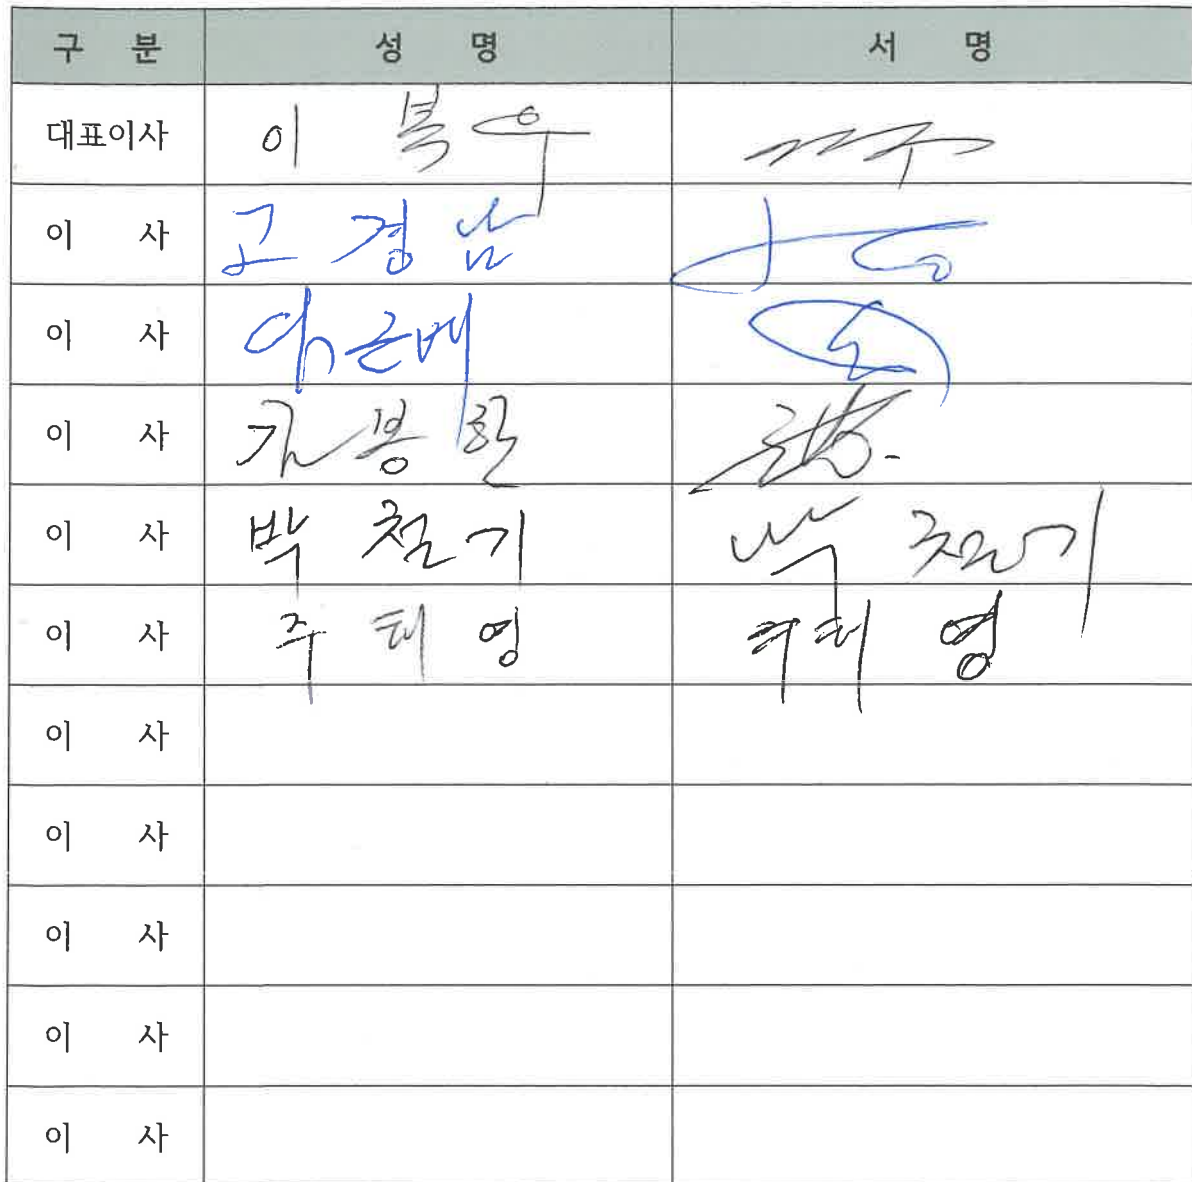 구 분 성 명 서 명
대표이사 이 복우
이 사 고 경 남
이 사 임근배
이 사 김봉환
이 사 박 철기 박 철기
이 사 주 태 영 주태 영
이 사
이 사
이 사
이 사
이 사